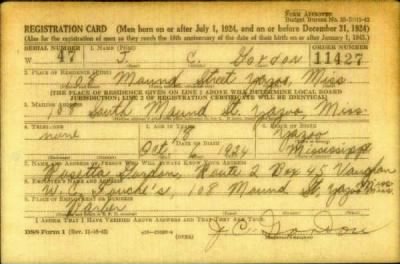 Form Approved
Budget Bureau No. 33-R012-42
REGISTRATION CARD (Men born on or after July 1, 1924, and on or before December 31, 1924)
(Also for the registration of men as they reach the 18th anniversary of the date of their birth on or after January 1, 1943.)
SERIAL NUMBER 1. NAME (Print) ORDER NUMBER
W 47 J. C. Gordon 11427
2. PLACE OF RESIDENCE (Print)
108 Mound Street Yazoo, Miss
(THE PLACE OF RESIDENCE GIVEN ON LINE 2 ABOVE WILL DETERMINE LOCAL BOARD
JURISDICTION; LINE 2 OF REGISTRATION CERTIFICATE WILL BE IDENTICAL)
3. MAILING ADDRESS
108 South Mound St. Yazoo, Miss.
4. TELEPHONE 5. AGE IN YEARS 6. PLACE OF BIRTH
none 18 Yazoo
DATE OF BIRTH
Oct 6 1924 Mississippi
7. NAME AND ADDRESS OF PERSON WHO WILL ALWAYS KNOW YOUR ADDRESS
Rosetta Gordon, Route 2 Box 45 Vaughan Miss
8. EMPLOYER'S NAME AND ADDRESS
W. C. 108 Mound St. Yazoo Miss.
9. PLACE OF EMPLOYMENT OR BUSINESS
I AFFIRM THAT I HAVE VERIFIED ABOVE ANSWERS AND THAT THEY ARE TRUE.
DSS Form 1 (Rev. 11-16-42) J. C. Gordon